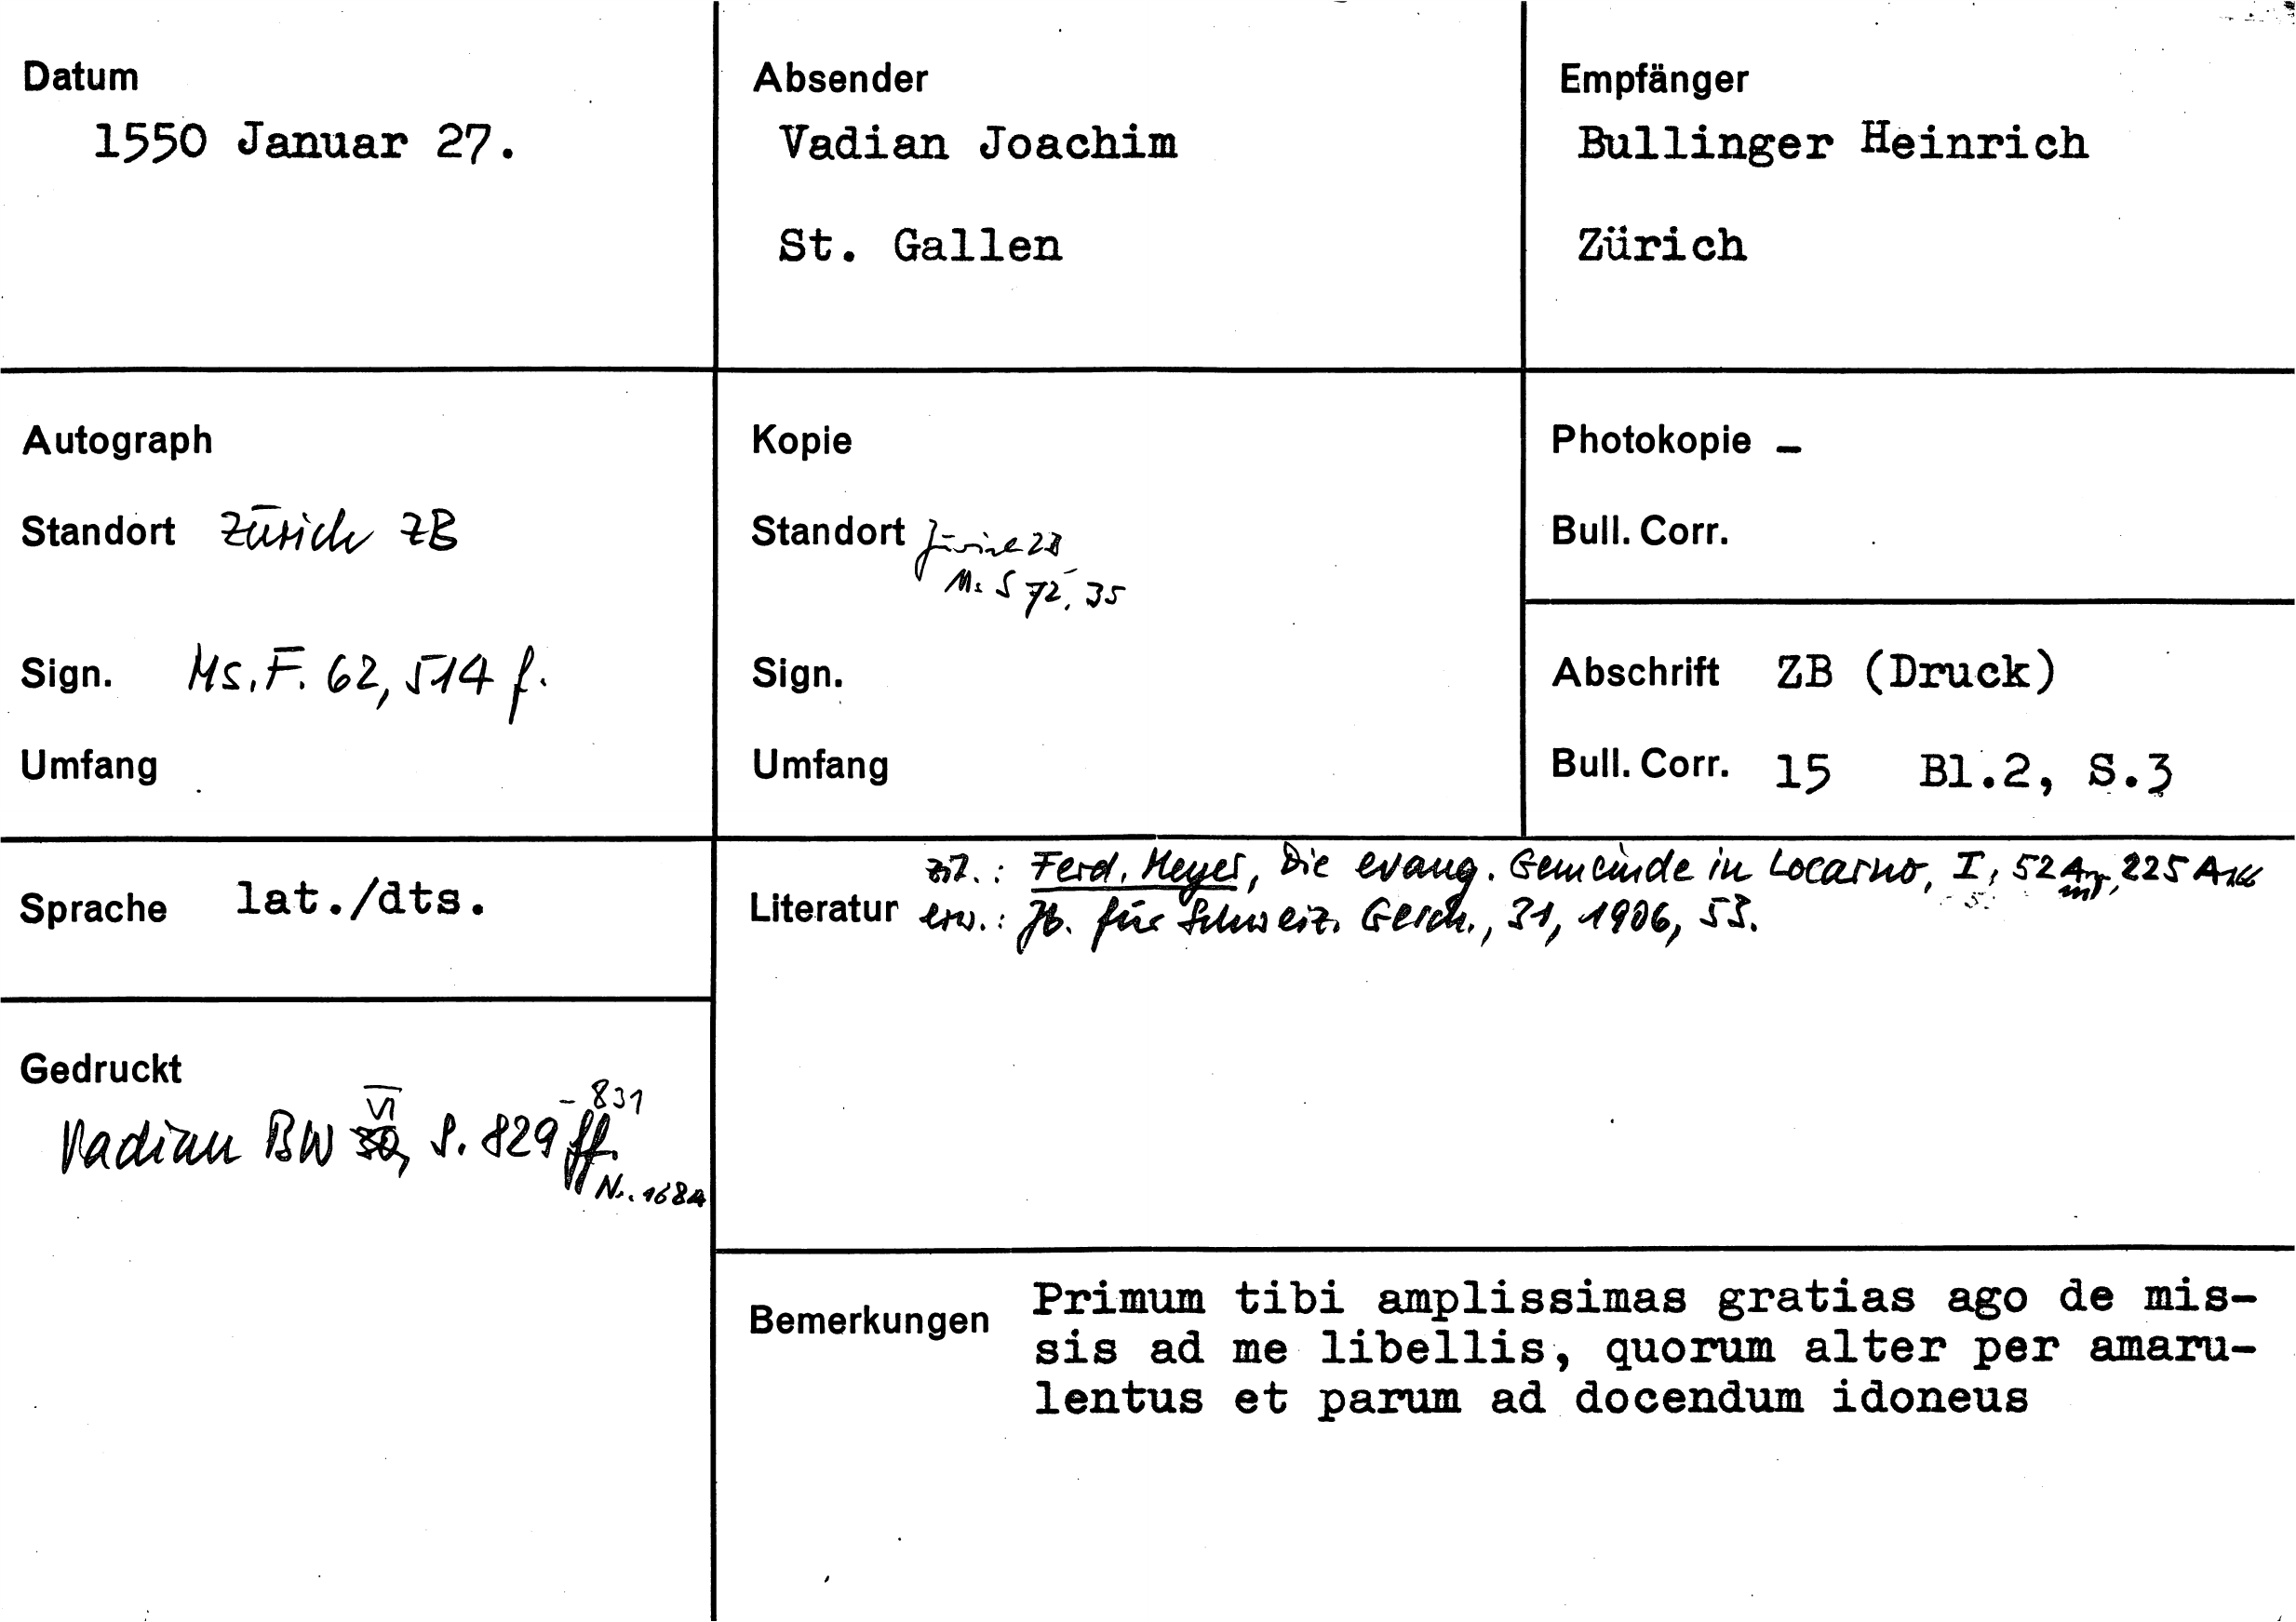 Datum
1550 Januar 27.
Absender
Vadian Joachim
St. Gallen
Empfänger
Bullinger Heinrich
Zürich
Autograph
Standort Zürich ZB
Sign. Ms. F. 62, 514 f.
Umfang
Kopie
Standort Zürich ZB
Ms S 72, 35
Sign.
Umfang
Photokopie –
Bull. Corr.
Abschrift ZB (Druck)
Bull. Corr. 15 Bl.2, S.3
Sprache lat./dts.
Literatur
zit.: Ferd. Meyer, Die evang. Gemeinde in Locarno, I, 52 Anm, 225 Anm
erw.: Jb. für Schweiz. Gesch., 31, 1906, 53.
Gedruckt
Vadian BW VI, S. 829-831
Nr. 1684
Bemerkungen
Primum tibi amplissimas gratias ago de mis-
sis ad me libellis, quorum alter per amaru-
lentus et parum ad docendum idoneus